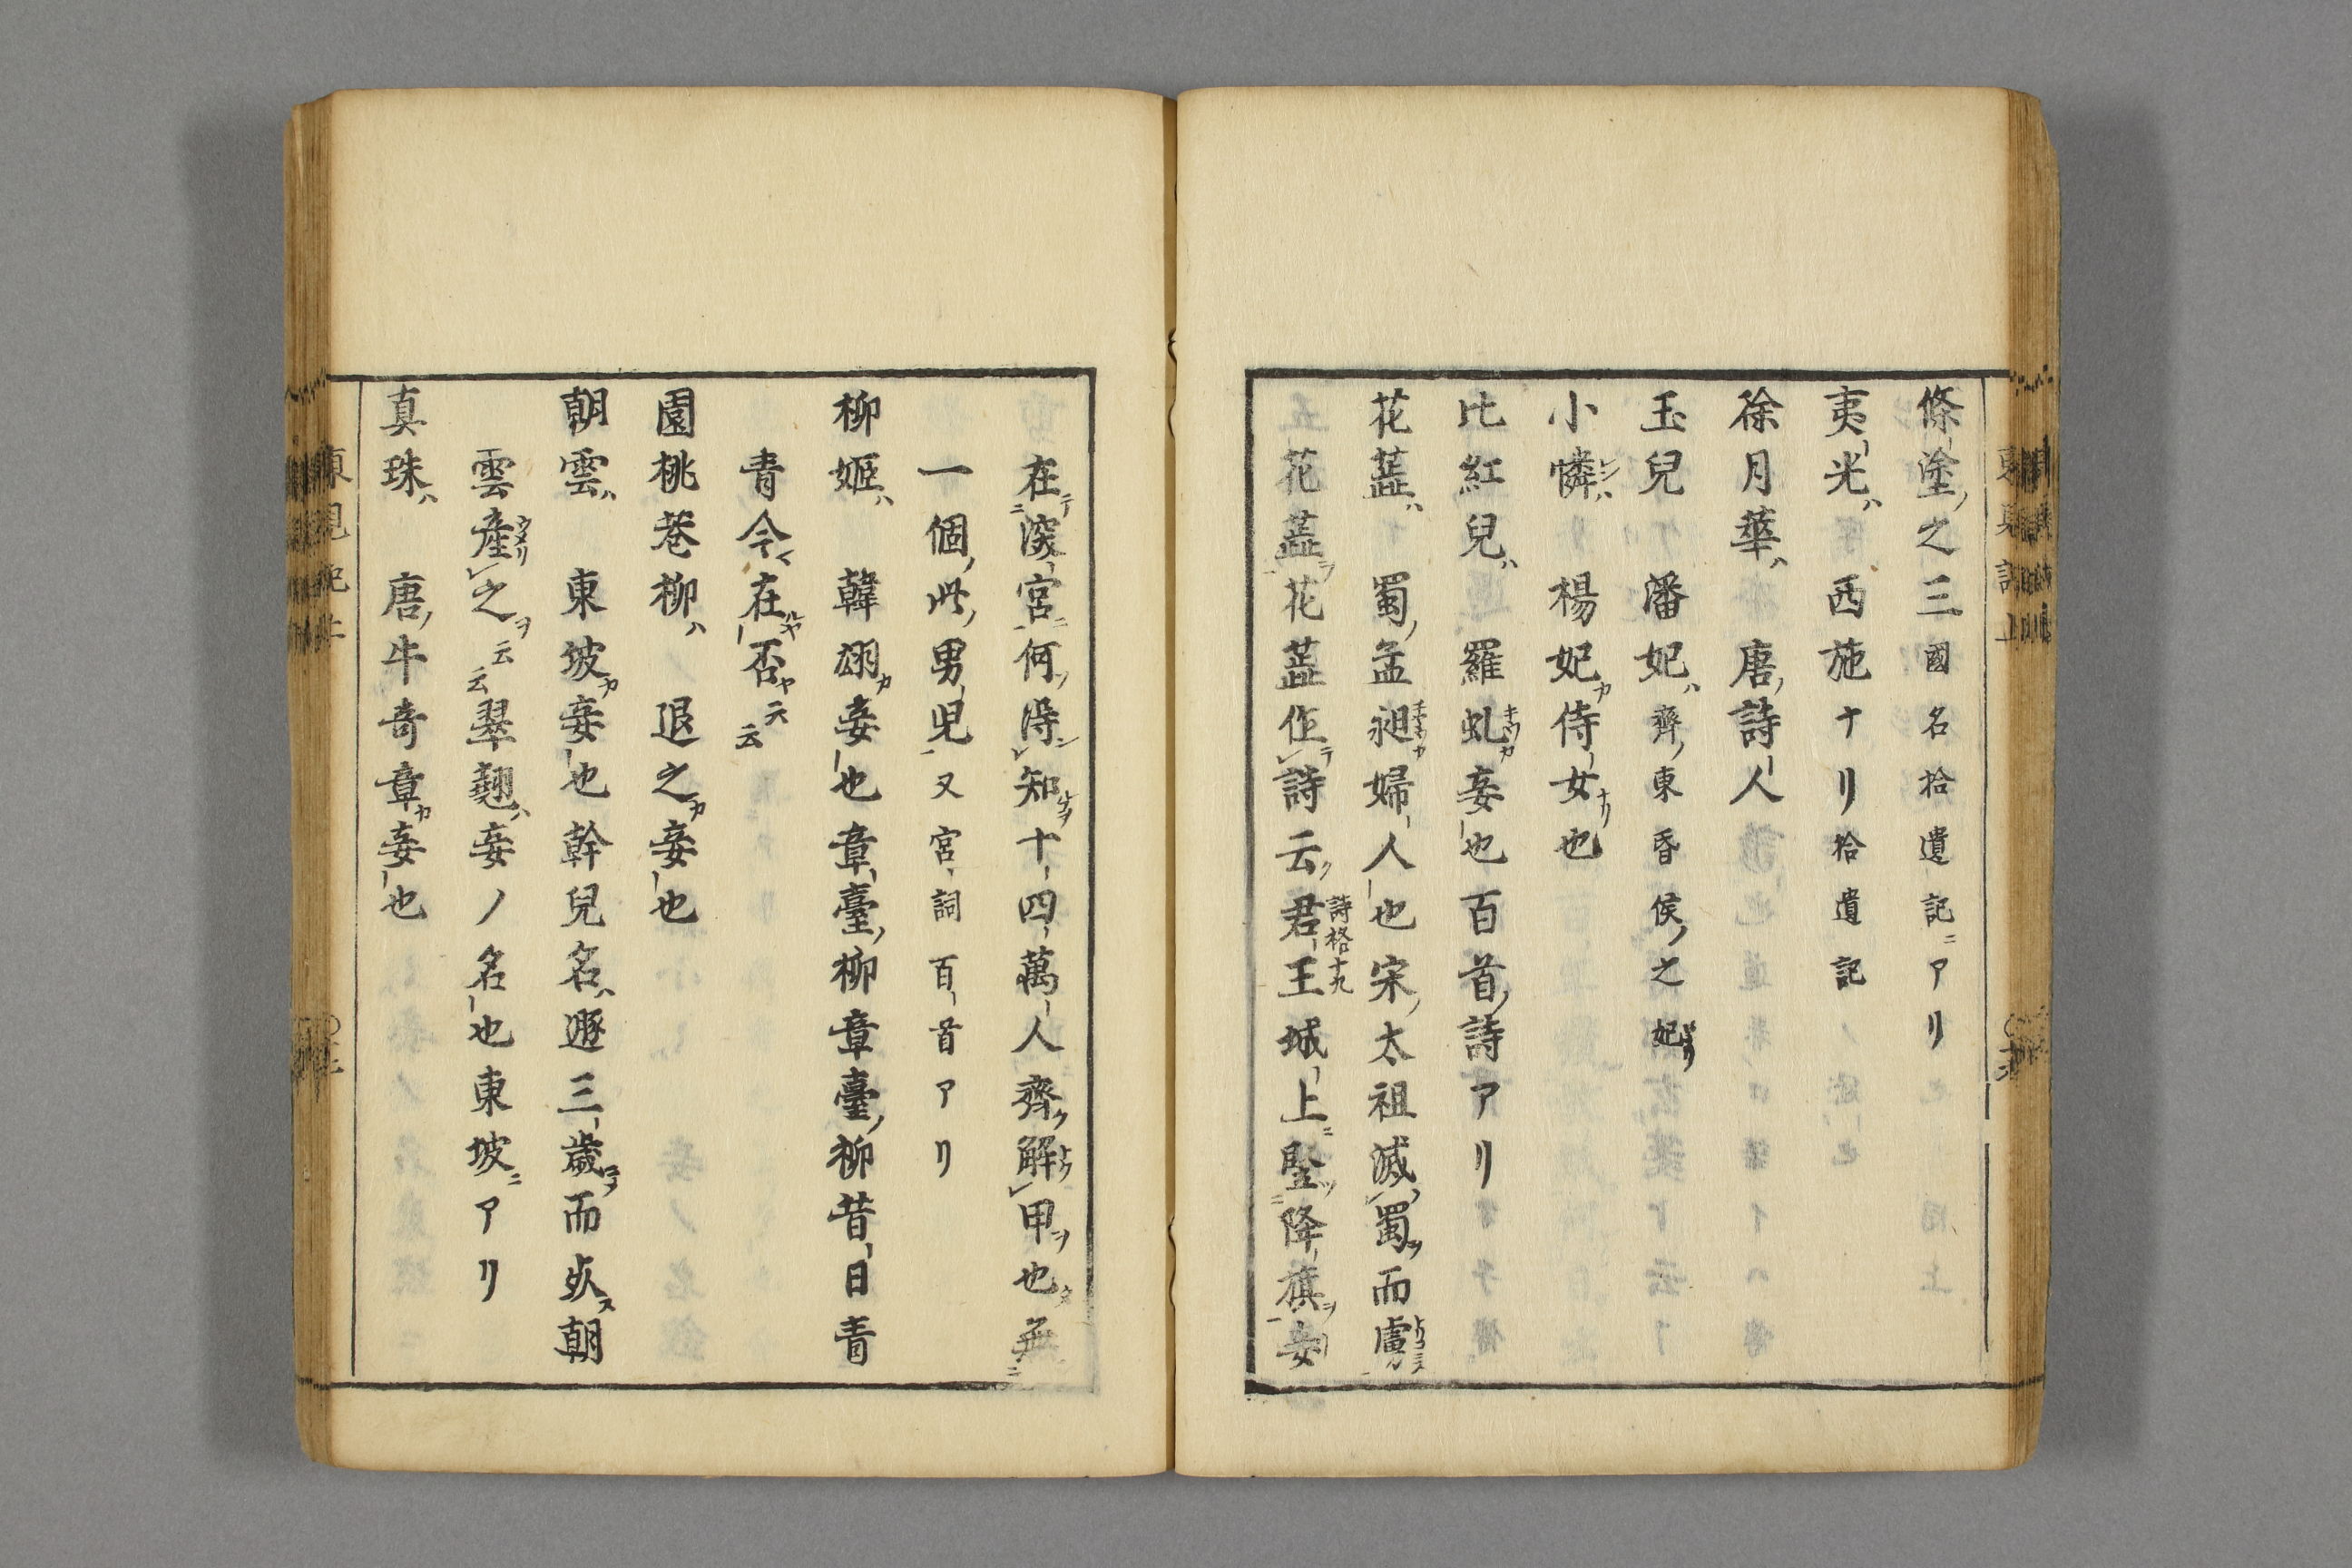 條塗ノ之三國名拾遺記ニアリ
夷光ハ 西施ナリ拾遺記
徐月華ハ 唐ノ詩人
玉兒 潘妃ハ齊ノ東昏侯ノ之妃ナリ
小憐ハ 楊妃カ侍女ナリ也
比紅兒ハ 羅虬カ妾也百首ノ詩アリ
花蘂ハ 蜀ノ孟昶カ婦人也宋ノ太祖滅蜀ヲ而虜
花蘂ヲ花蘂作テ詩云ク君王城上ニ竪ツ降旗ヲ妾
詩格十九
在テ深宮ニ何ノ得ン知ヿヲ十四萬人齊ク解トク甲ヲ也タ無ニ
一個ノ此ノ男兒又宮詞百首アリ
柳姬ハ 韓翃カ妾也章臺ノ柳章臺ノ柳昔日青
青今在ルヤ否ヤ云云
園桃巷柳ハ 退之カ妾也
朝雲ハ 東坡カ妾也幹兒名ハ遯三歲ニシテ而夭ス朝
雲產ウメリ之ヲ云云翠翹ハ妾ノ名也東坡ニアリ
真珠ハ 唐ノ牛奇章カ妾也